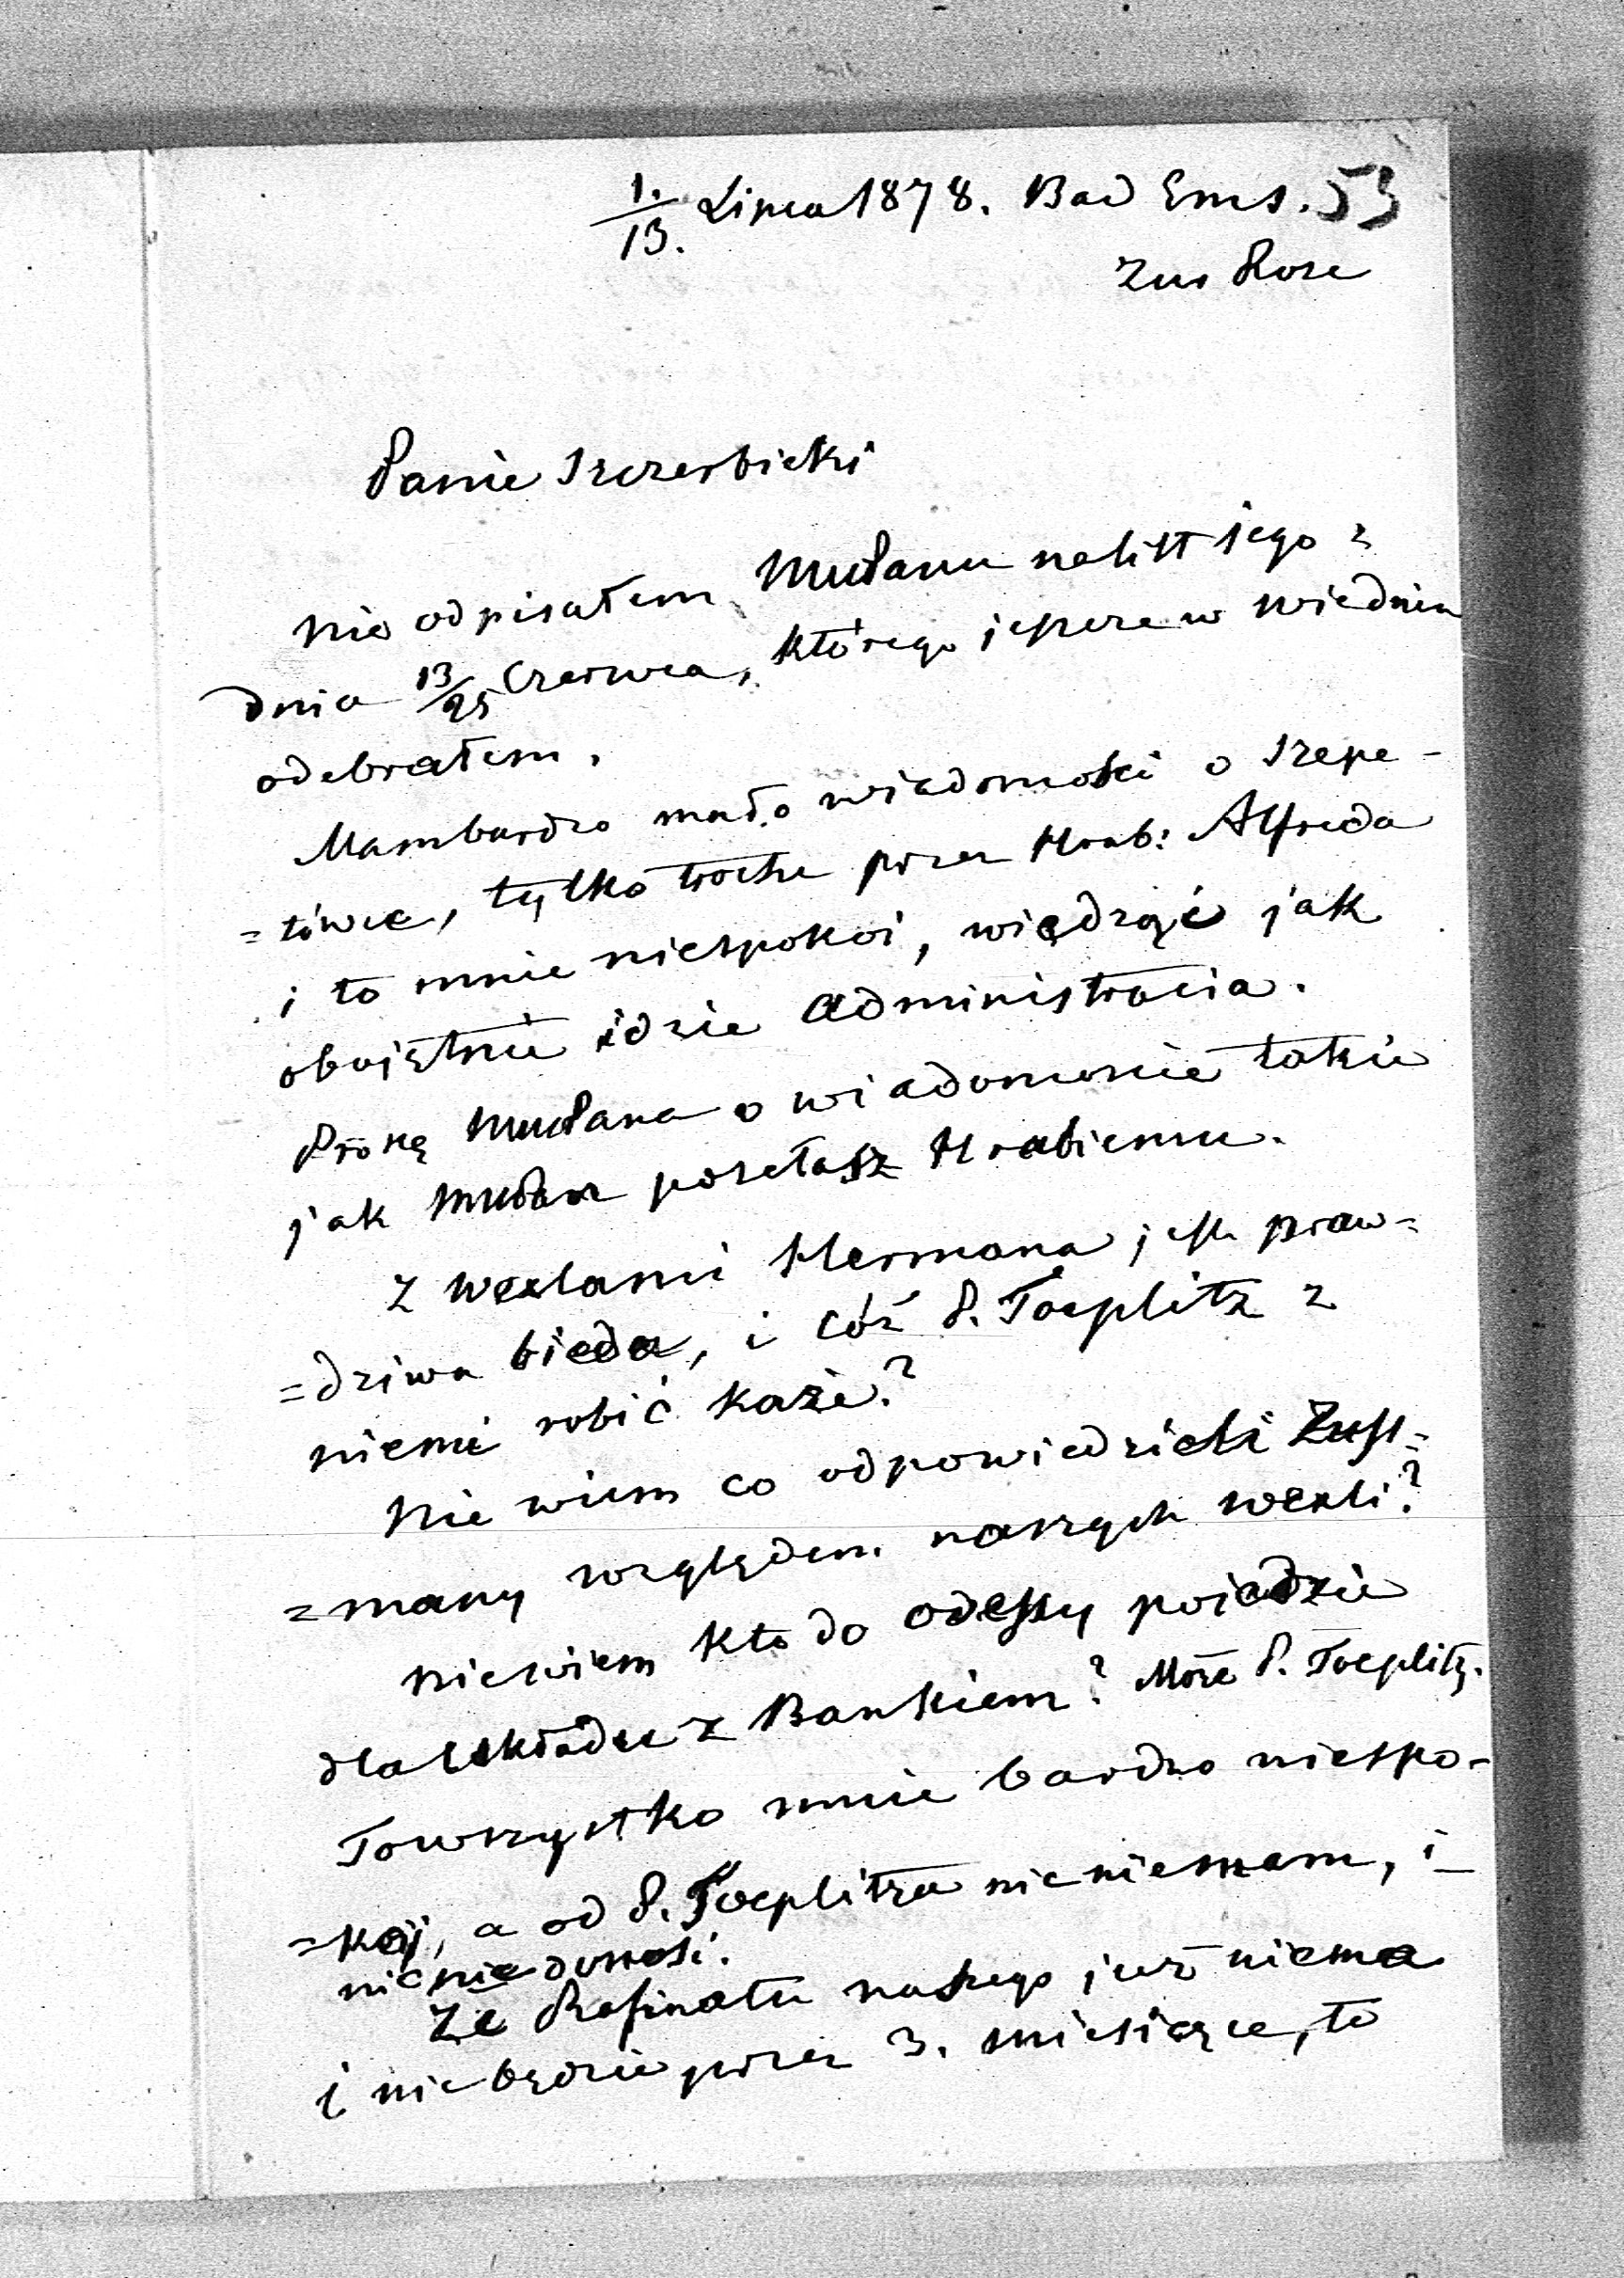 1./13. Lipca 1878. Bad Ems. 53
Zur Rose
Panie Szczerbicki
Nie odpisałem MwPanu na list jego z
dnia 13/25 Czerwca, którego jeszcze w Wiedniu
odebrałem.
Mam bardzo mało wiadomości o Szepe-
=tówce, tylko trochę przez Hrab: Alfreda
i to mnie niespokoi, wiedząć jak
obojętnie idzie Administracia.
Proszę MwPana o wiadomoście takie
jak MwPan posełasz Hrabiemu.
Z wexlami Hermana jest praw-
=dziwa bieda, i cóż P. Toeplitz z
niemi robić każe?
Nie wiem co odpowiedzieli Zuss-
=many względem naszych wexli?
niewiem kto do Odessy poiedzie
dla układu z Bankiem? Może P. Toeplitz.
To wszystko mnie bardzo niespo-
=koj, a od P. Toeplitza nic niemam, i
nic nie donosi.
Że Rafinatu naszego już niema
i nie będzie przez 3. miesiące, to